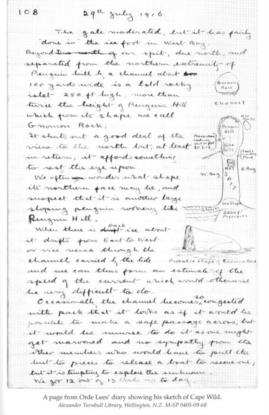 108 29th July 1916
The gale moderated, but it has fairly
done in the ice foot in West Bay.
Beyond our spit, due north, and
separated from the northern extremity of
Penguin hill by a channel about
100 yards wide is a bold rocky
islet 250 ft high, more than
twice the height of Penguin Hill
which from its shape we call
Gnomon Rock.
It shuts out a good deal of the
view to the north but, at least
in return, it affords something
to rest the eye upon.
We often wonder what shape
its northern face may be, and
suspect that it is another large
sloping penguin rookery like
Penguin Hill.
When there is pack ice about
it drifts from East to West
or vice versa through the
channel carried by the tide
and we can thus form an estimate of the
speed of the current which would otherwise
be very difficult to do.
Occasionally the channel becomes so congested
with pack that it looks as if it would be
possible to make a safe passage across, but
it would be unwise to do it as one might
get marooned and no sympathy from the
other members who would have to pull the
hut to pieces to release a boat to rescue one,
but it is tempting to explore the unknown.
We got 12 out of 13 to day.
Gnomon Rock
Channel
W. Bay
E. Bay
A page from Orde Lees' diary showing his sketch of Cape Wild.
Alexander Turnbull Library, Wellington, N.Z. M-SP 0405-09-68